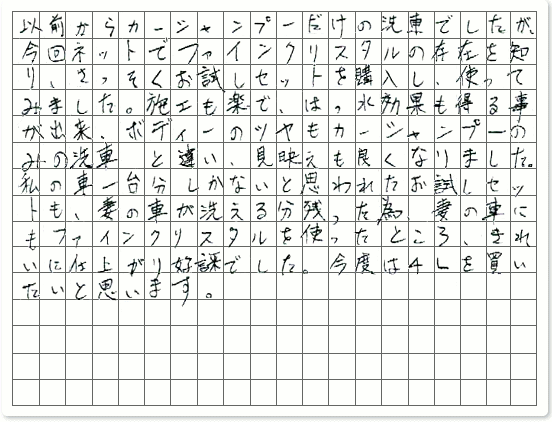 以前からカーシャンプーだけの洗車でしたが、
今回ネットでファインクリスタルの存在を知
り、さっそくお試しセットを購入し、使って
みました。施工も楽で、はっ水効果も得る事
が出来、ボディーのツヤもカーシャンプーの
みの洗車 と違い、見映えも良くなりました。
私の車一台分しかないと思われたお試しセッ
トも、妻の車が洗える分残った為、妻の車に
もファインクリスタルを使ったところ、きれ
いに仕上がり好評でした。今度は4Lを買い
たいと思います。